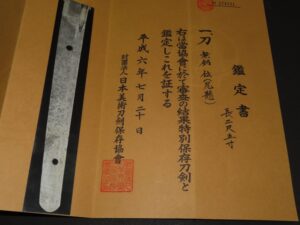 鑑定書
一、刀 無銘
長二尺五寸
右は當協會に於て審査の結果特別保存刀剣と
鑑定しこれを証する
平成六年七月二十日
財團法人日本美術刀剣保存協會